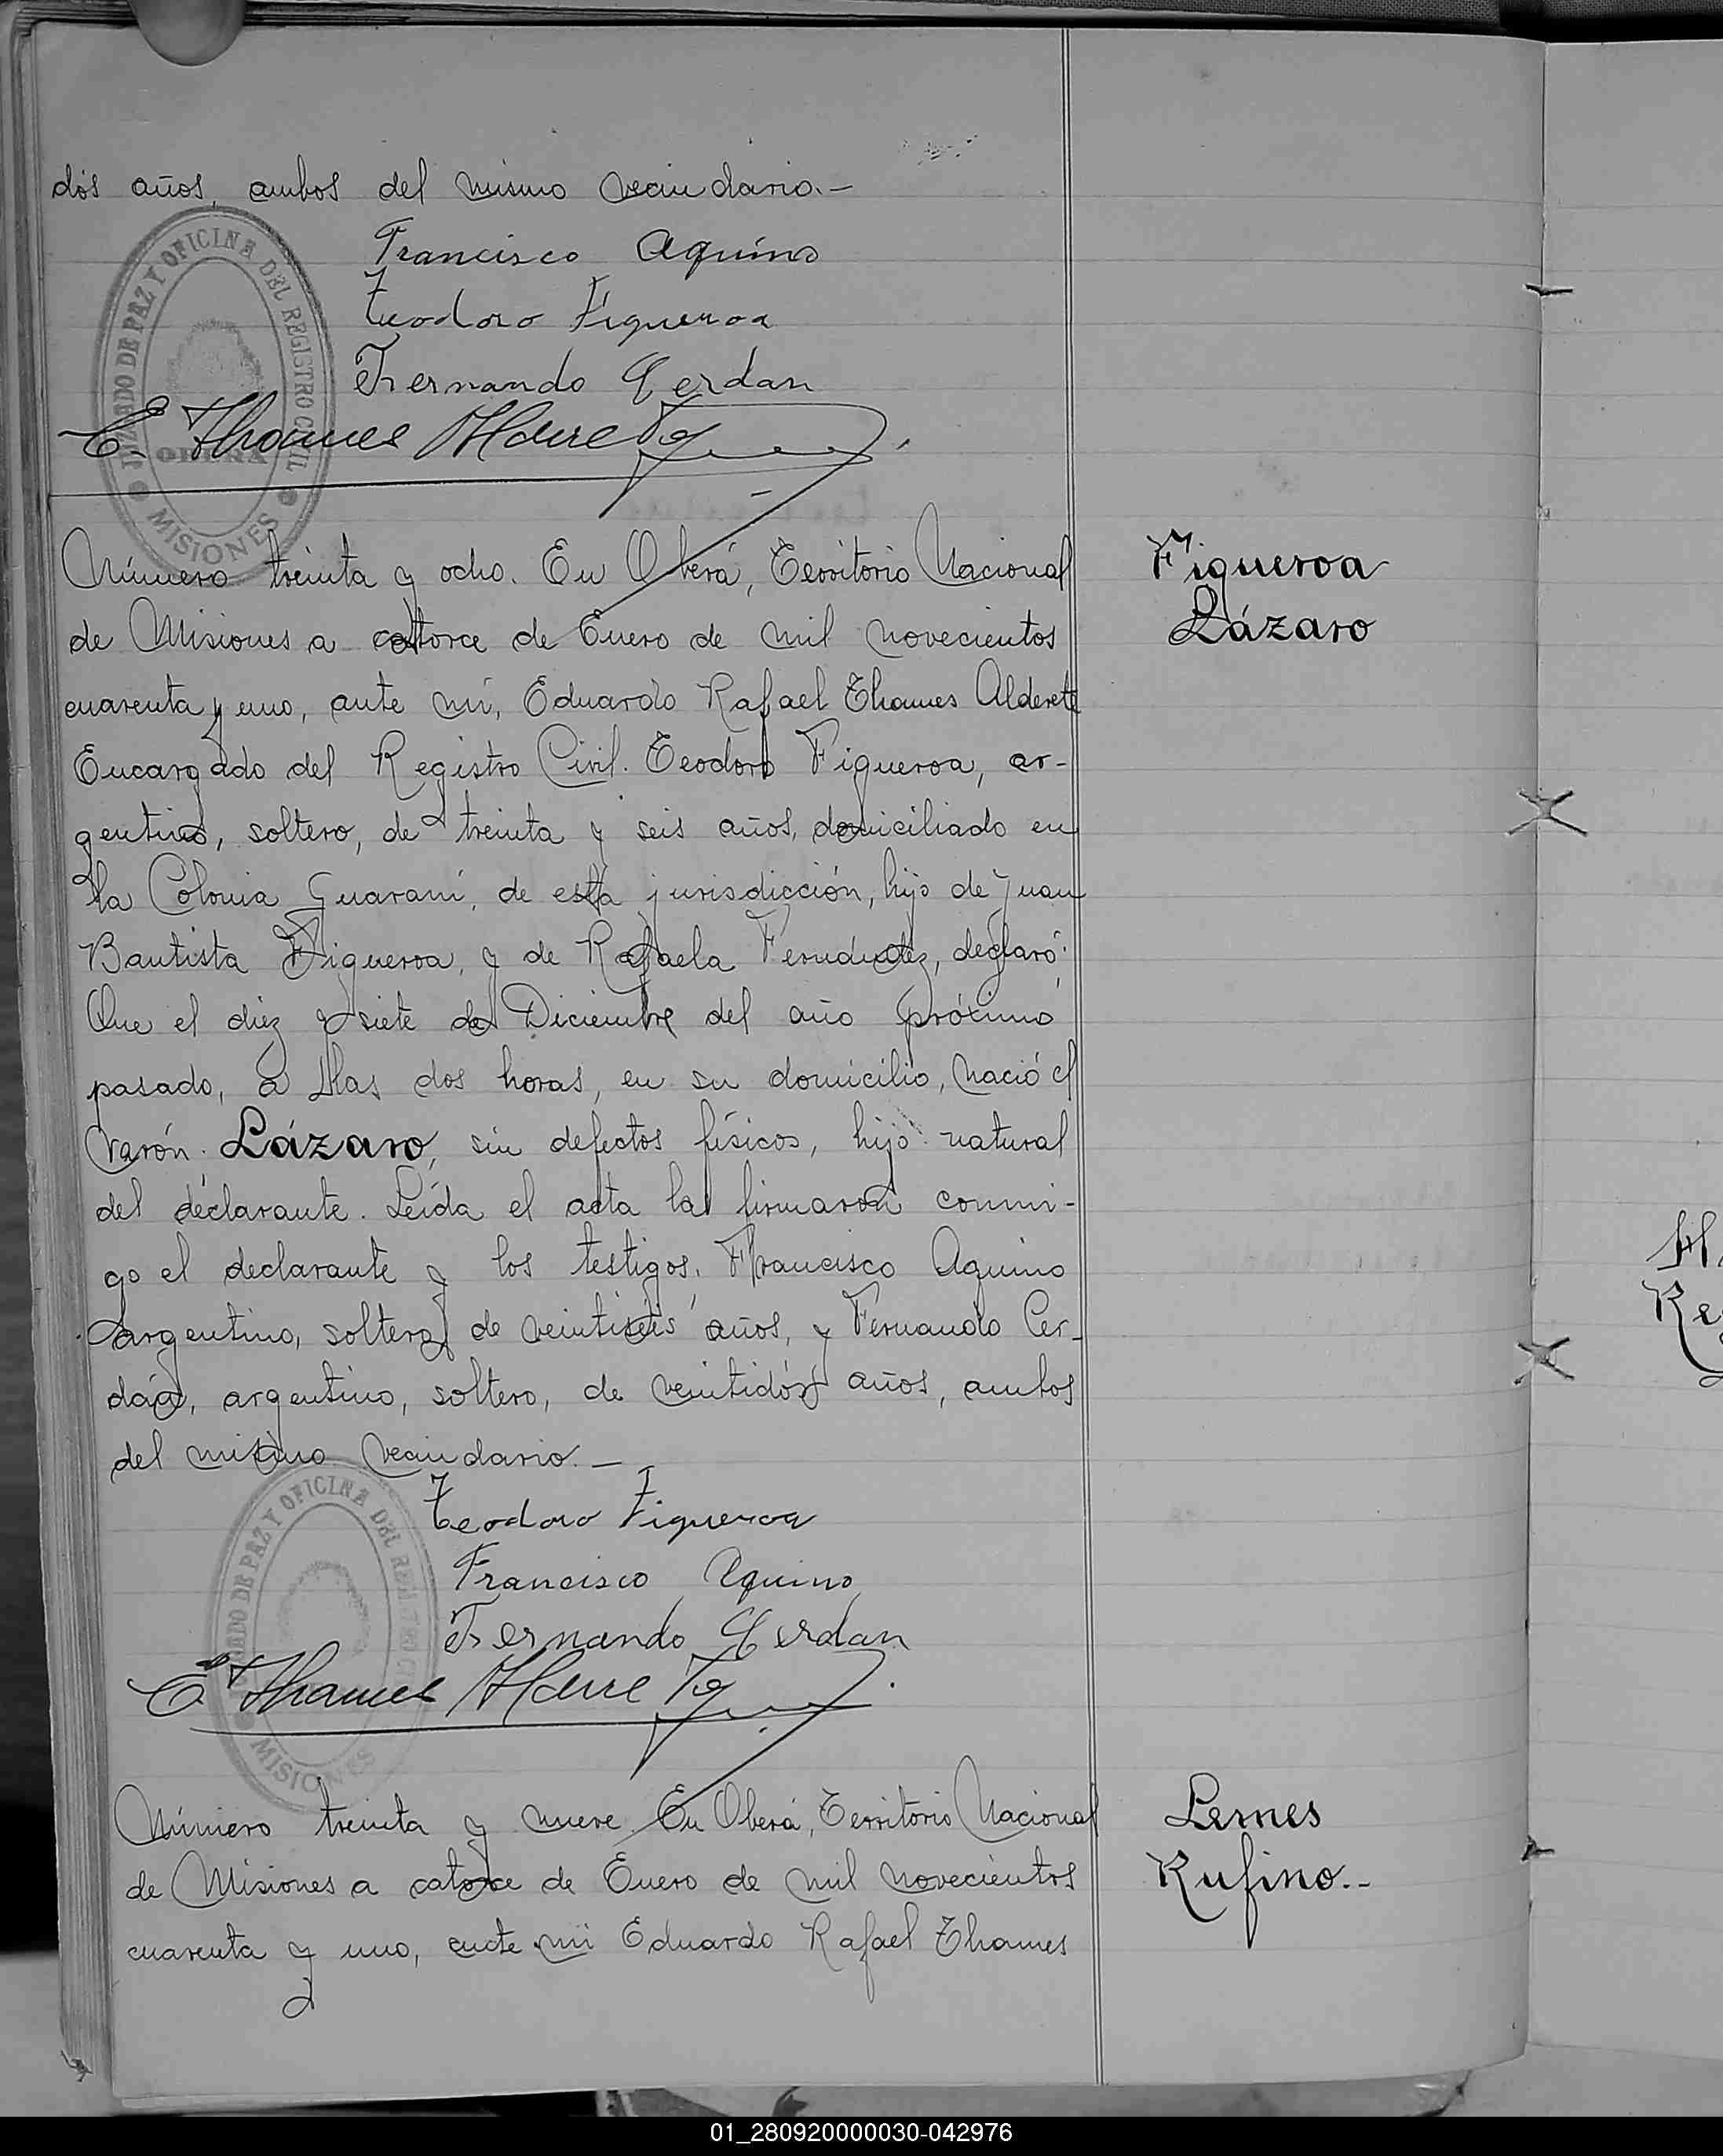 dós años, ambos del mismo vecindario.—
Francisco Aquino
Teodoro Figueroa
Fernando Cerdan
JUZGADO DE PAZ Y OFICINA DEL REGISTRO CIVIL
OBERA
MISIONES
E. Thames Alderete
Número treinta y ocho. En Oberá, Territorio Nacional
Figueroa
Lázaro
de Misiones a catorce de Enero de mil novecientos
cuarenta y uno, ante mí, Eduardo Rafael Thames Alderete
Encargado del Registro Civil. Teodoro Figueroa, ar-
gentino, soltero, de treinta y seis años, domiciliado en
la Colonia Guaraní, de esta jurisdicción, hijo de Juan
Bautista Figueroa, y de Rafaela declaró:
Que el diez y siete de Diciembre del año próximo
pasado, a las dos horas, en su domicilio, nació el
varón: Lázaro, sin defectos físicos, hijo natural
del declarante. Leída el acta la firmaron conmi-
go el declarante y los testigos, Francisco Aquino
argentino, soltero, de años, y Fernando Cer-
dán, argentino, soltero, de veintidós años, ambos
del mismo vecindario.—
Teodoro Figueroa
Francisco Aquino
Fernando Cerdan
JUZGADO DE PAZ Y OFICINA DEL REGISTRO CIVIL
MISIONES
E. Thames Alderete
Número treinta y nueve. En Oberá, Territorio Nacional
Lemes
Rufino.-
de Misiones a catorce de Enero de mil novecientos
cuarenta y uno, ante mí Eduardo Rafael Thames
01_280920000030-042976